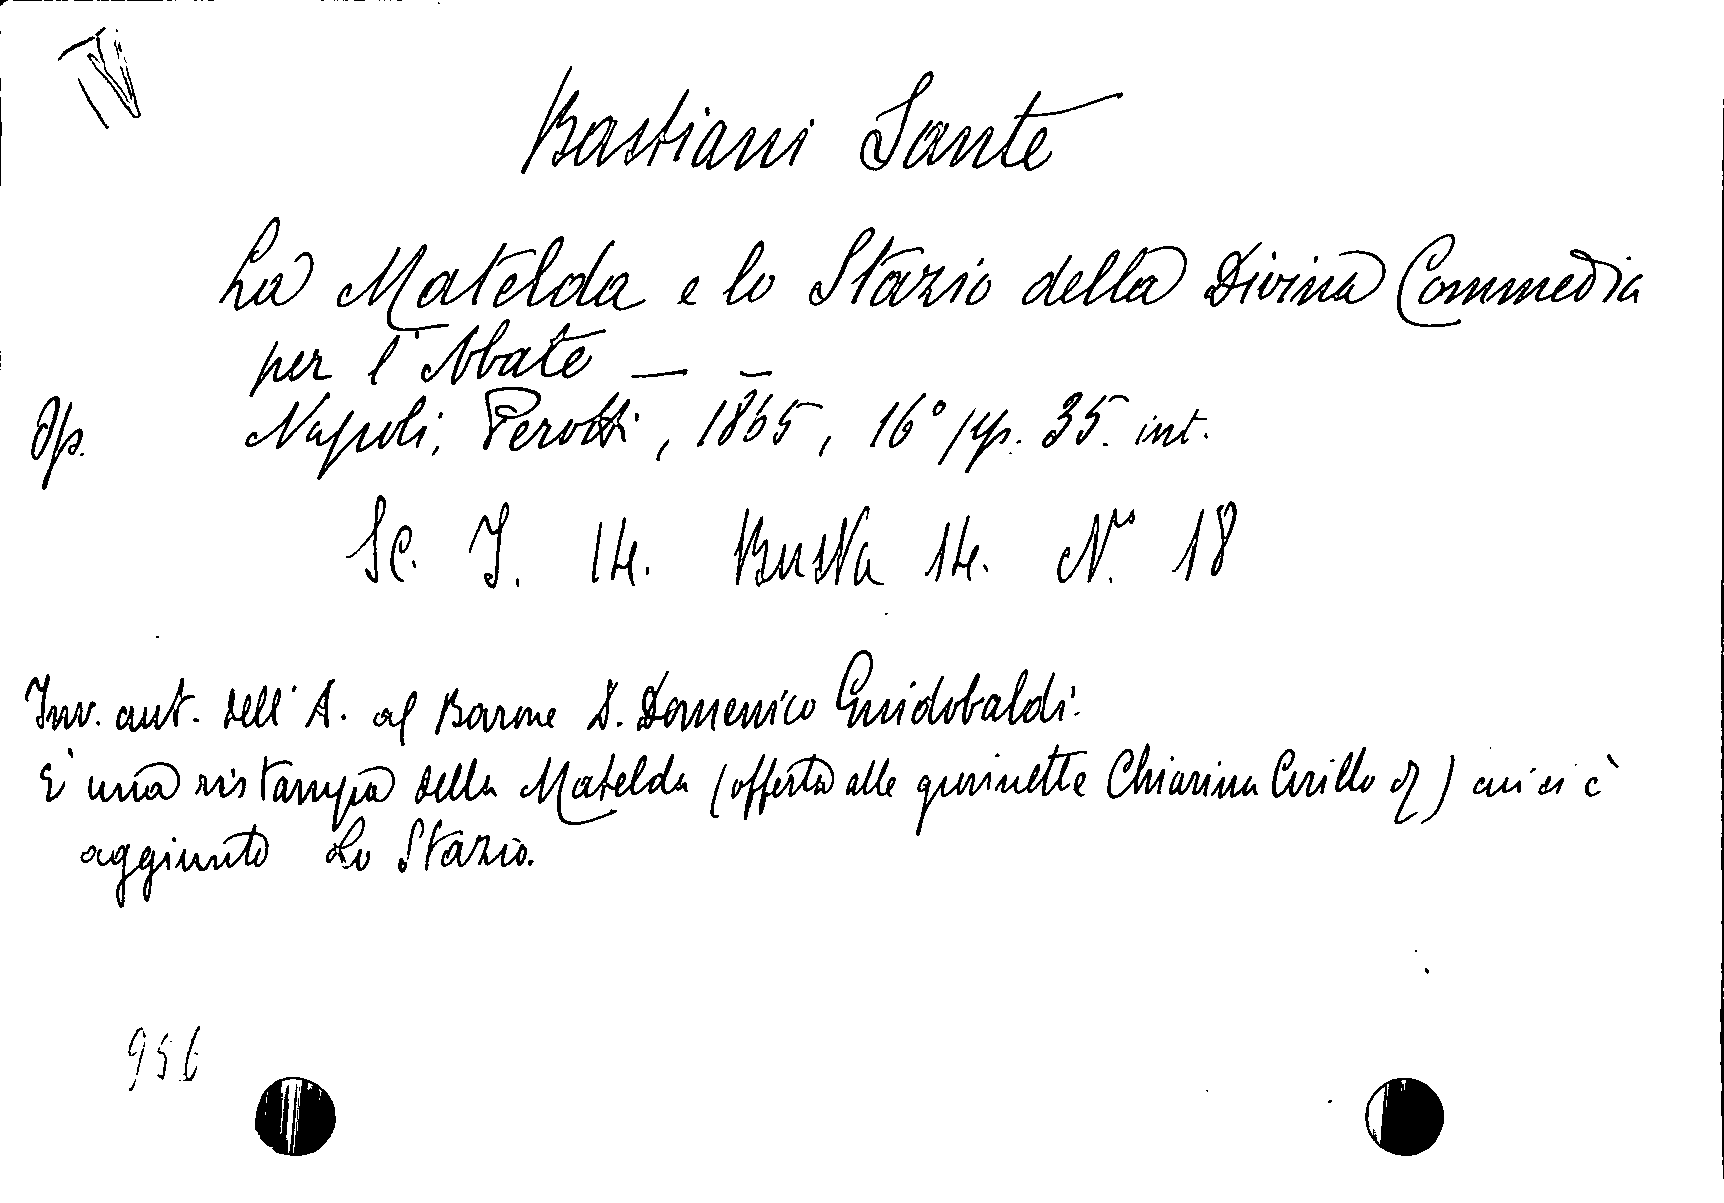 IV
Bastiani Sante
La Matelda e lo Stazio della Divina Commedia
per l'Abate — —
Op. Napoli, Perotti, 1865, 16° pp. 35. int.
Sc. I. 14. Busta 14. N.° 18
Inv. aut. dell'A. al Barone D. Domenico Guidobaldi.
E' una ristampa della Matelda (offerta alle Chiarina Cirillo) cui si è
aggiunto Lo Stazio.
956